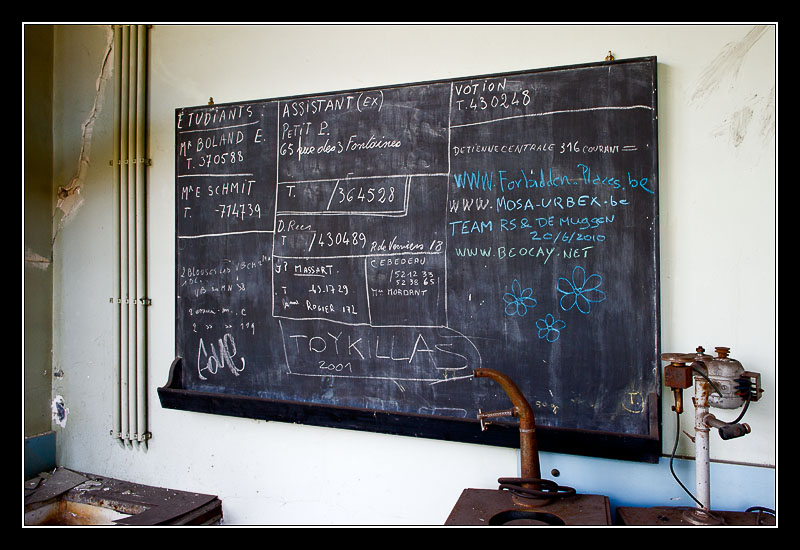 ETUDIANTS
Mr BOLAND E.
T. 370588
Mr E SCHMIT
T -714739
ASSISTANT (EX)
PETIT P.
65 rue des 3 Fontaines
T. /364528
D. Rees
T /430489 R de Verviers 18
MASSART.
T 43.17.29
ROGIER 172
CEBEDEAU
/52 12 33
52 38 65
MORDANT
TOYKILLAS
2001
VOTION
T. 430248
DETIENNE CENTRALE 316 COURANT =
WWW.Forbidden-Places.be
WWW.MOSA-URBEX.be
TEAM RS & DE Muggen
20/6/2010
WWW.BEOCAY.NET